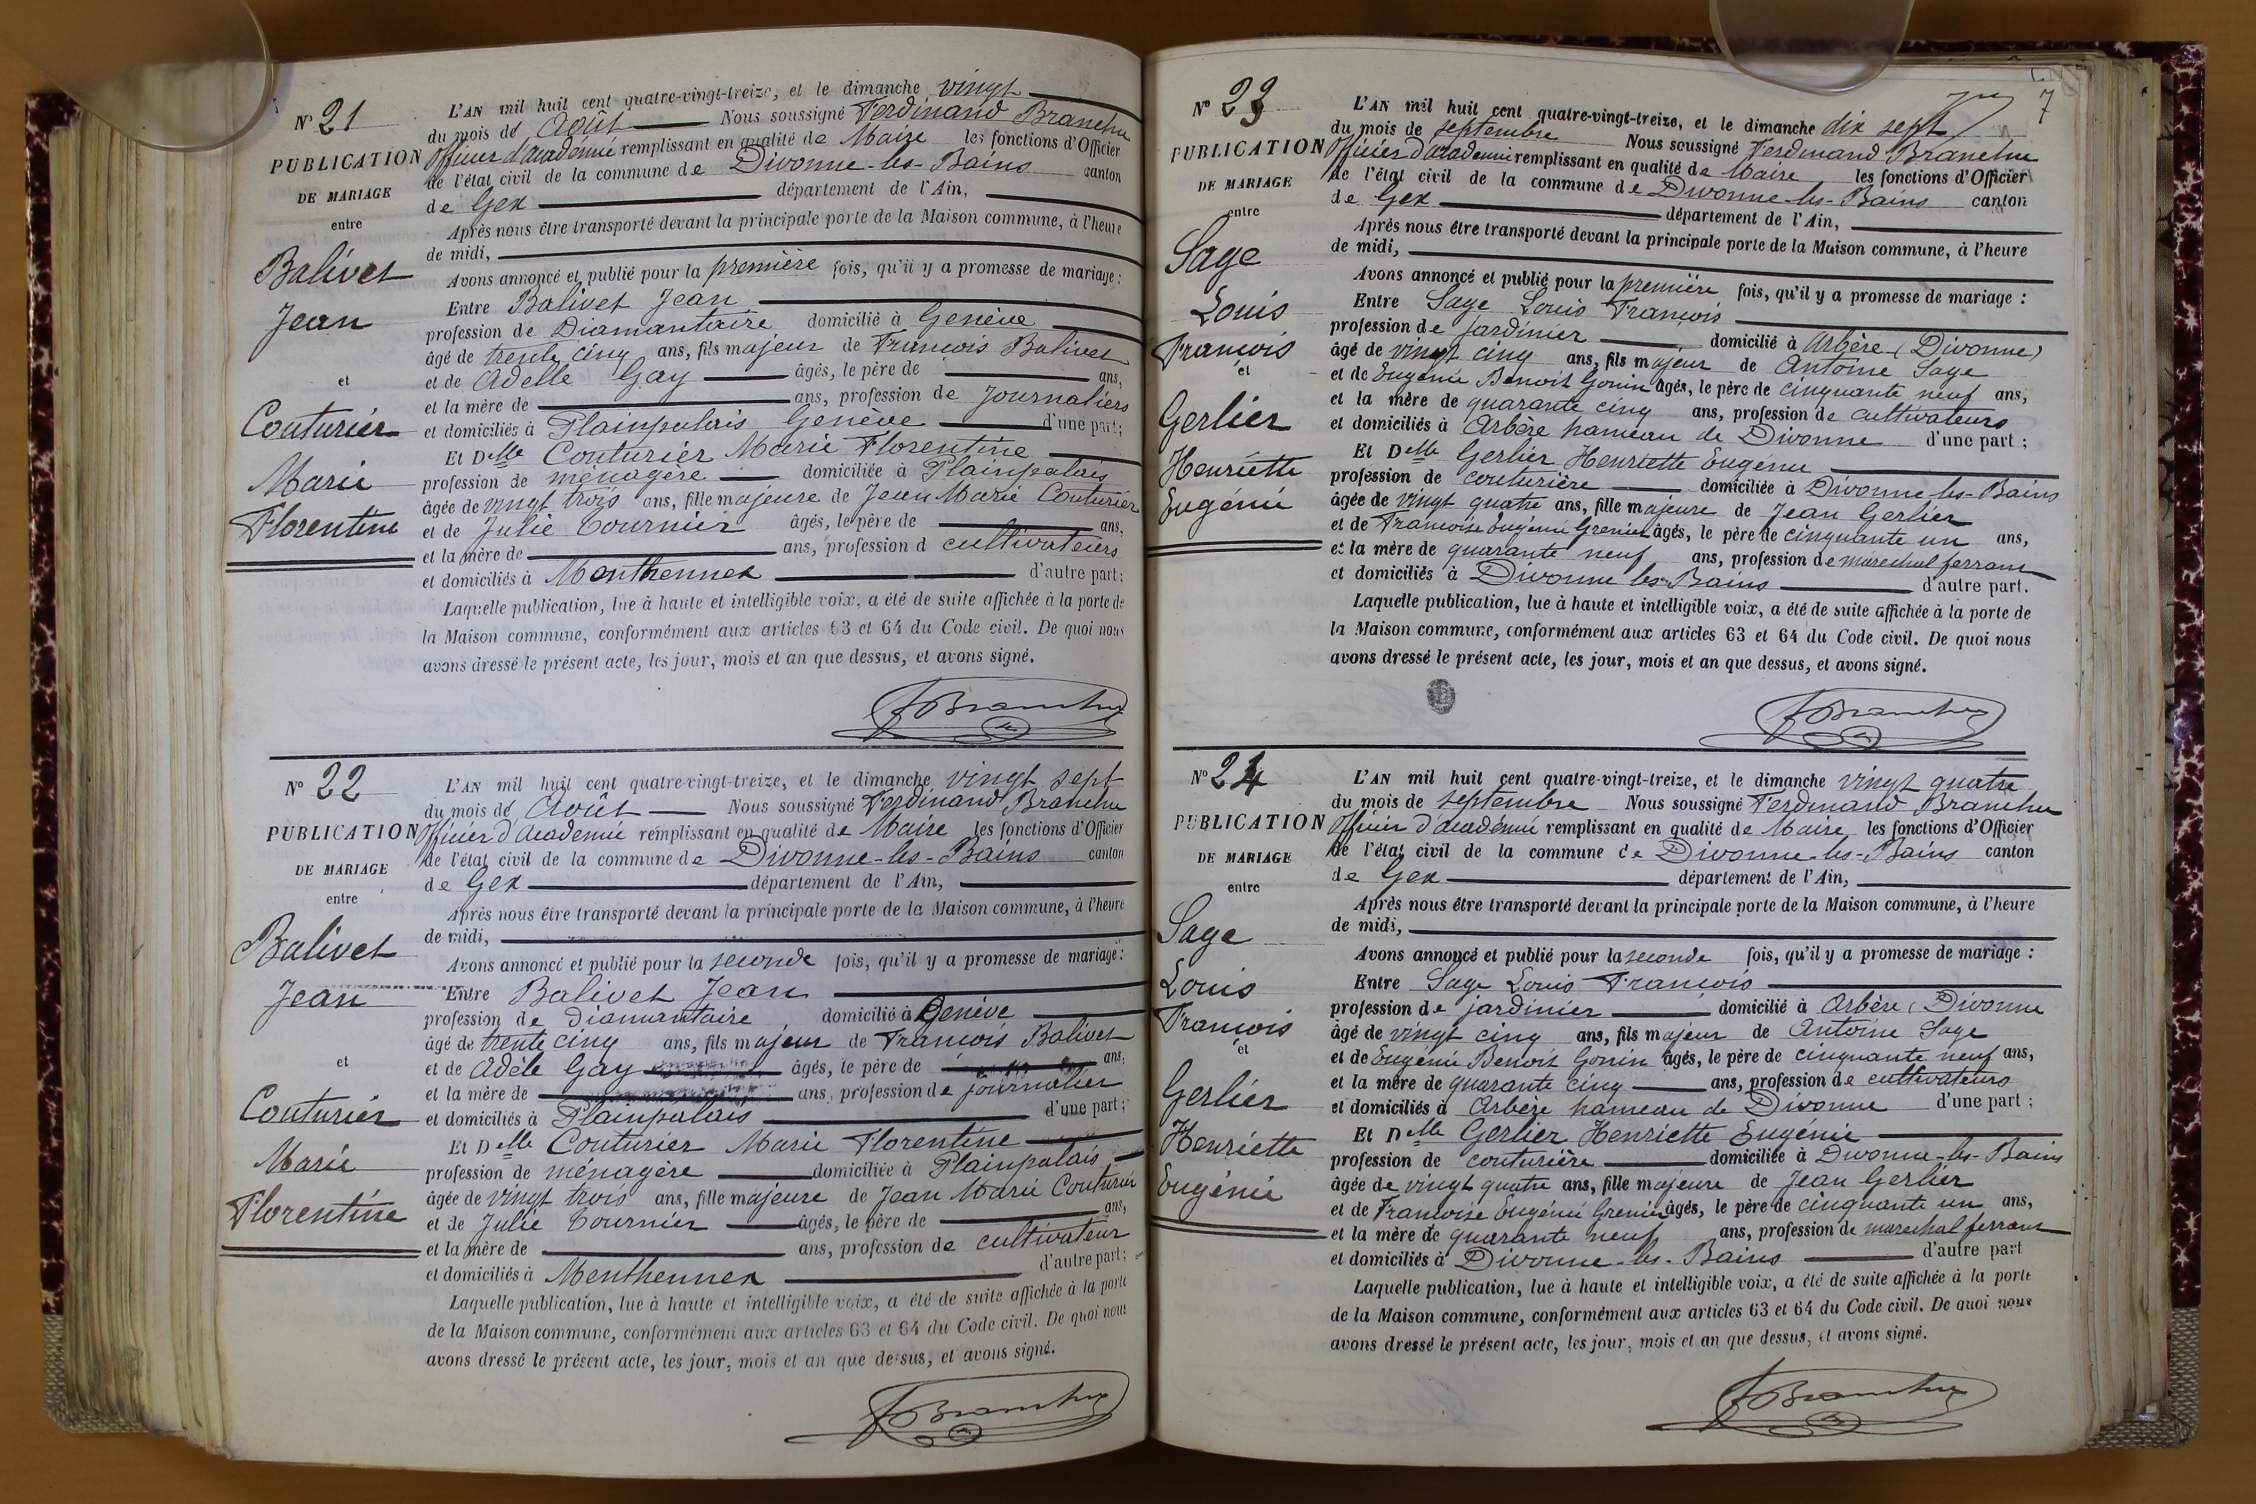 N° 21
PUBLICATION
DE MARIAGE
entre
Balivet
Jean
et
Couturier
Marie
Florentine
L'AN mil huit cent quatre-vingt-treize, et le dimanche vingt
du mois de Août Nous soussigné Ferdinand Branchu
Officier d'académie remplissant en qualité de Maire les fonctions d'Officier
de l'état civil de la commune de Divonne-les-Bains canton
de Gex département de l'Ain,
Après nous être transporté devant la principale porte de la Maison commune, à l'heure
de midi,
Avons annoncé et publié pour la première fois, qu'il y a promesse de mariage :
Entre Balivet Jean
profession de Diamantaire domicilié à Genève
âgé de trente cinq ans, fils majeur de François Balivet
et de Adelle Gay âgés, le père de ans,
et la mère de ans, profession de Journaliers
et domiciliés à Plainpalais Genève d'une part;
Et Delle Couturier Marie Florentine
profession de ménagère domiciliée à Plainpalais
âgée de vingt trois ans, fille majeure de Jean Marie Couturier
et de Julie Tournier âgés, le père de ans,
et la mère de ans, profession d cultivateurs
et domiciliés à Menthennex d'autre part;
Laquelle publication, lue à haute et intelligible voix, a été de suite affichée à la porte de
la Maison commune, conformément aux articles 63 et 64 du Code civil. De quoi nous
avons dressé le présent acte, les jour, mois et an que dessus, et avons signé.
FBranchu
N° 22
PUBLICATION
DE MARIAGE
entre
Balivet
Jean
et
Couturier
Marie
Florentine
L'AN mil huit cent quatre-vingt-treize, et le dimanche vingt sept
du mois de Août Nous soussigné Ferdinand Branchu
Officier d'Académie remplissant en qualité de Maire les fonctions d'Officier
de l'état civil de la commune de Divonne-les-Bains canton
de Gex département de l'Ain,
Après nous être transporté devant la principale porte de la Maison commune, à l'heure
de midi,
Avons annoncé et publié pour la seconde fois, qu'il y a promesse de mariage :
Entre Balivet Jean
profession de Diamantaire domicilié à Genève
âgé de trente cinq ans, fils majeur de François Balivet
et de Adèle Gay âgés, le père de ans,
et la mère de ans, profession de journalier
et domiciliés à Plainpalais d'une part;
Et Delle Couturier Marie Florentine
profession de ménagère domiciliée à Plainpalais
âgée de vingt trois ans, fille majeure de Jean Marie Couturier
et de Julie Tournier âgés, le père de ans,
et la mère de ans, profession de cultivateur
et domiciliés à Menthennex d'autre part;
Laquelle publication, lue à haute et intelligible voix, a été de suite affichée à la porte
de la Maison commune, conformément aux articles 63 et 64 du Code civil. De quoi nous
avons dressé le présent acte, les jour, mois et an que dessus, et avons signé.
FBranchu
7
N° 23
PUBLICATION
DE MARIAGE
entre
Sage
Louis
François
et
Gerlier
Henriette
Eugénie
L'AN mil huit cent quatre-vingt-treize, et le dimanche dix sept
du mois de septembre Nous soussigné Ferdinand Branchu
Officier d'académie remplissant en qualité de Maire les fonctions d'Officier
de l'état civil de la commune de Divonne-les-Bains canton
de Gex département de l'Ain,
Après nous être transporté devant la principale porte de la Maison commune, à l'heure
de midi,
Avons annoncé et publié pour la première fois, qu'il y a promesse de mariage :
Entre Sage Louis François
profession de jardinier domicilié à Arbère (Divonne)
âgé de vingt cinq ans, fils majeur de Antoine Sage
et de Eugénie Benoit Gonin âgés, le père de cinquante neuf ans,
et la mère de quarante cinq ans, profession de cultivateurs
et domiciliés à Arbère hameau de Divonne d'une part ;
Et Delle Gerlier Henriette Eugénie
profession de couturière domiciliée à Divonne-les-Bains
âgée de vingt quatre ans, fille majeure de Jean Gerlier
et de Francoise Eugénie Grenier âgés, le père de cinquante un ans,
et la mère de quarante neuf ans, profession de maréchal ferrant
et domiciliés à Divonne les Bains d'autre part.
Laquelle publication, lue à haute et intelligible voix, a été de suite affichée à la porte de
la Maison commune, conformément aux articles 63 et 64 du Code civil. De quoi nous
avons dressé le présent acte, les jour, mois et an que dessus, et avons signé.
FBranchu
N° 24
PUBLICATION
DE MARIAGE
entre
Sage
Louis
François
et
Gerlier
Henriette
Eugénie
L'AN mil huit cent quatre-vingt-treize, et le dimanche vingt quatre
du mois de septembre Nous soussigné Ferdinand Branchu
Officier d'académie remplissant en qualité de Maire les fonctions d'Officier
de l'état civil de la commune de Divonne-les-Bains canton
de Gex département de l'Ain,
Après nous être transporté devant la principale porte de la Maison commune, à l'heure
de midi,
Avons annoncé et publié pour la seconde fois, qu'il y a promesse de mariage :
Entre Sage Louis François
profession de jardinier domicilié à Arbère (Divonne
âgé de vingt cinq ans, fils majeur de Antoine Sage
et de Eugénie Benoit Gonin âgés, le père de cinquante neuf ans,
et la mère de quarante cinq ans, profession de cultivateurs
et domiciliés à Arbère hameau de Divonne d'une part ;
Et Delle Gerlier Henriette Eugénie
profession de couturière domiciliée à Divonne-les-Bains
âgée de vingt quatre ans, fille majeure de Jean Gerlier
et de Francoise Eugénie Grenier âgés, le père de cinquante un ans,
et la mère de quarante neuf ans, profession de marechal ferrant
et domiciliés à Divonne-les-Bains d'autre part
Laquelle publication, lue à haute et intelligible voix, a été de suite affichée à la porte
de la Maison commune, conformément aux articles 63 et 64 du Code civil. De quoi nous
avons dressé le présent acte, les jour, mois et an que dessus, et avons signé.
FBranchu